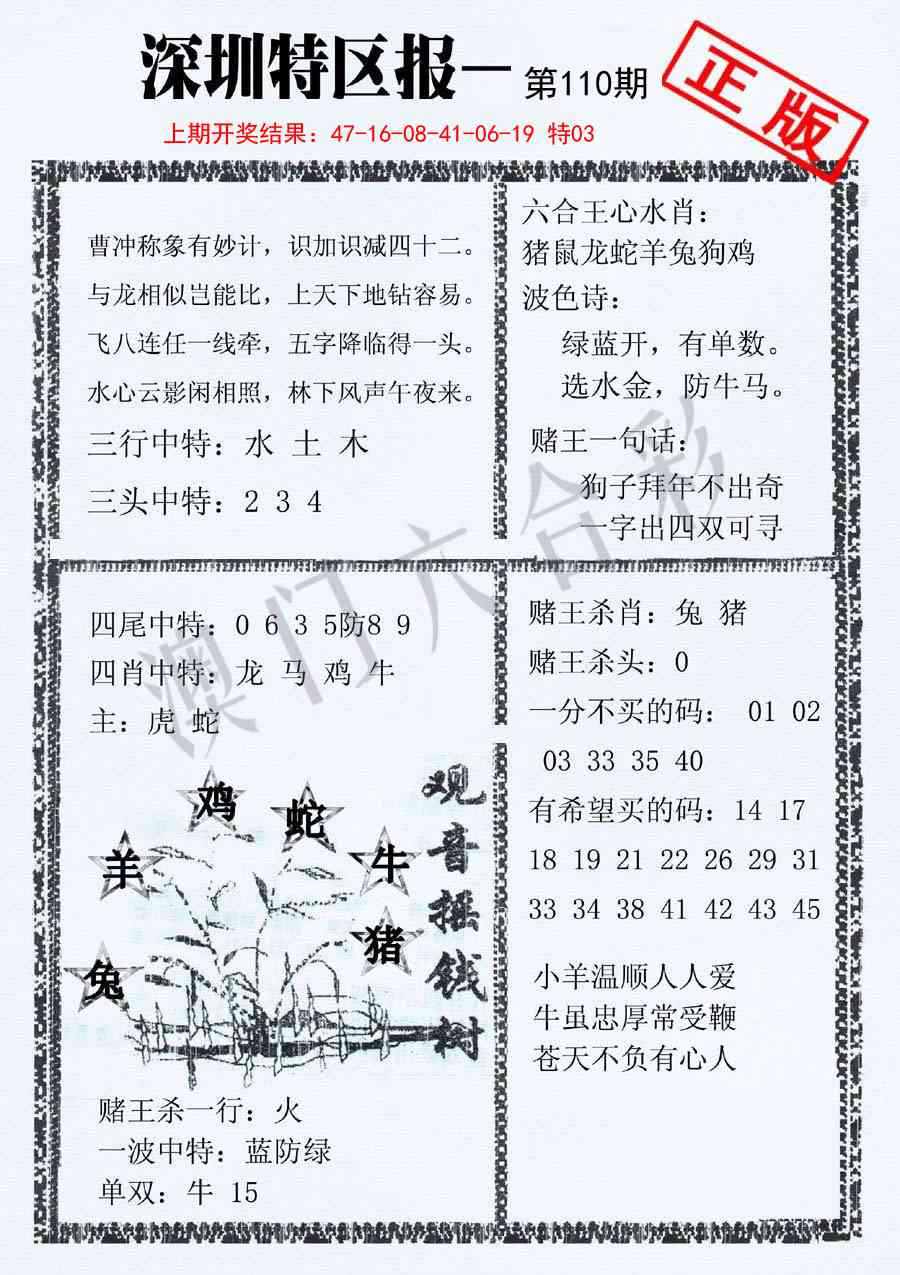 深圳特区报一 第110期
正版
上期开奖结果：47-16-08-41-06-19 特03
曹冲称象有妙计，识加识减四十二。
与龙相似岂能比，上天下地钻容易。
飞八连任一线牵，五字降临得一头。
水心云影闲相照，林下风声午夜来。
三行中特：水 土 木
三头中特：2 3 4
六合王心水肖：
猪鼠龙蛇羊兔狗鸡
波色诗：
绿蓝开，有单数。
选水金，防牛马。
赌王一句话：
狗子拜年不出奇
一字出四双可寻
四尾中特：0 6 3 5防8 9
四肖中特：龙 马 鸡 牛
主：虎 蛇
观音摇钱树
鸡
蛇
羊
牛
猪
兔
赌王杀一行：火
一波中特：蓝防绿
单双：牛 15
赌王杀肖：兔 猪
赌王杀头：0
一分不买的码： 01 02
03 33 35 40
有希望买的码：14 17
18 19 21 22 26 29 31
33 34 38 41 42 43 45
小羊温顺人人爱
牛虽忠厚常受鞭
苍天不负有心人
澳门六合彩